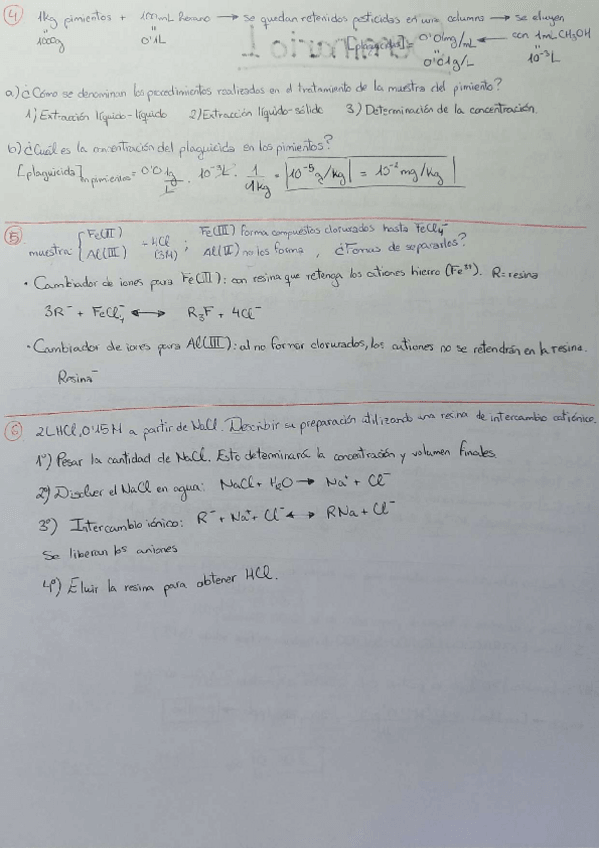 ④ 1kg pimientos + 100mL Hexano → se quedan retenidos pesticidas en una columna → se eluyen
1000g 0'1L [plaguicida] = 0'01mg/mL ← con 1mL CH3OH
0'01g/L 10⁻³L
a) ¿Cómo se denominan los procedimientos realizados en el tratamiento de la muestra del pimiento?
1) Extracción líquido-líquido 2) Extracción líquido-sólido 3) Determinación de la concentración.
b) ¿Cuál es la concentración del plaguicida en los pimientos?
[plaguicida] en pimientos = 0'01 g/L · 10⁻³L · 1/1kg = 10⁻⁵g/kg = 10⁻² mg/kg
⑤ muestra: { Fe(III) Al(III) - HCl (3M) ; Fe(III) forma compuestos clorurados hasta FeCl4⁻ Al(III) no los forma, ¿Formas de separarles?
• Cambiador de iones para Fe(III): con resina que retenga los cationes hierro (Fe³⁺). R=resina
3R⁻ + FeCl4⁻ ↔ R3F + 4Cl⁻
• Cambiador de iones para Al(III): al no formar clorurados, los cationes no se retendrán en la resina.
Resina⁻
⑥ 2L HCl, 0'15M a partir de NaCl. Describir su preparación utilizando una resina de intercambio catiónico.
1º) Pesar la cantidad de NaCl. Esto determinará la concentración y volumen finales.
2º) Disolver el NaCl en agua: NaCl + H2O → Na⁺ + Cl⁻
3º) Intercambio iónico: R⁻ + Na⁺ + Cl⁻ ↔ RNa + Cl⁻
Se liberan los aniones
4º) Eluir la resina para obtener HCl.